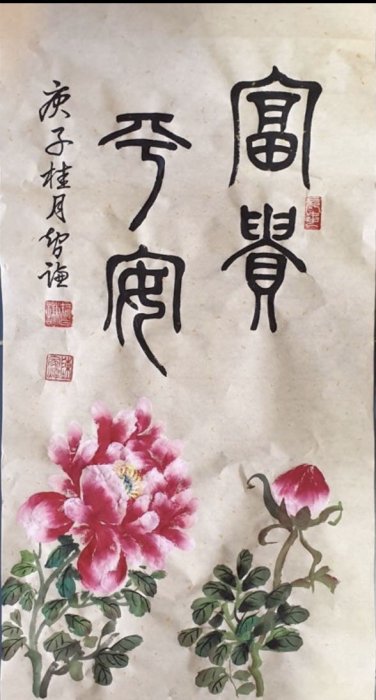 富貴
平安
庚子桂月智謙